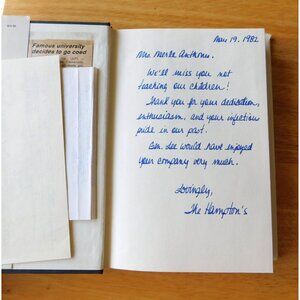 Famous university
decides to go coed
Nov 19, 1982
Mrs. Merle Anthony,
We'll miss you not
teaching our children!
Thank you for your dedication,
enthusiasm, and your infectious
pride in our past.
Gen. Lee would have enjoyed
your company very much.
Lovingly,
The Hampton's